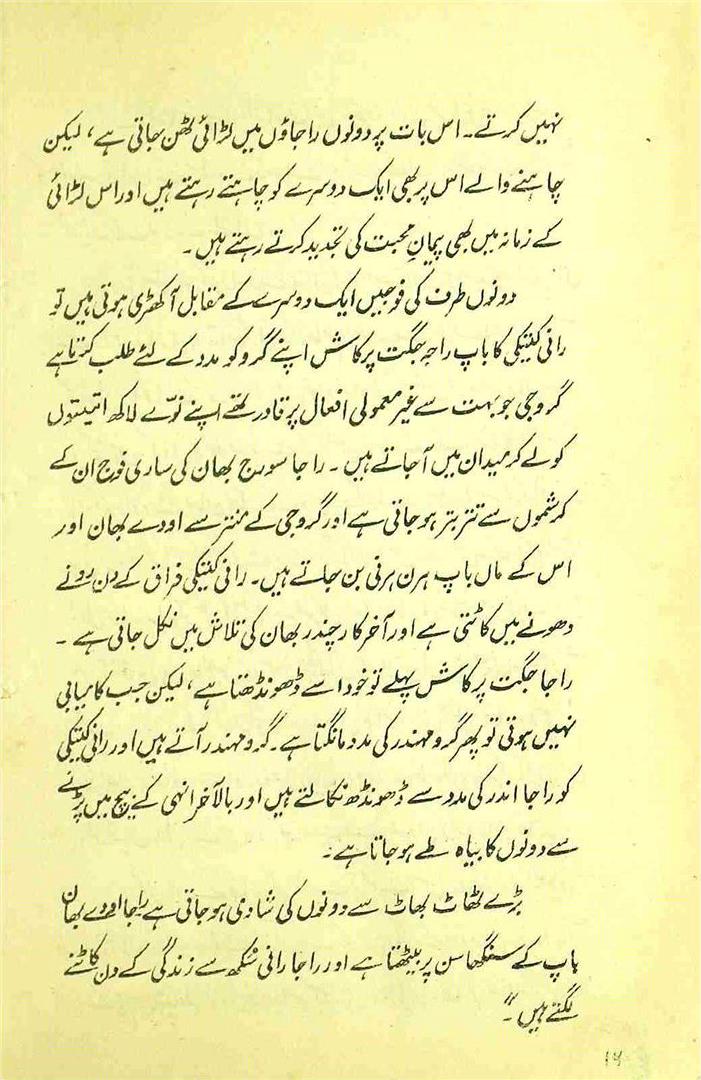 نہیں کرتے۔ اس بات پر دونوں راجاؤں میں لڑائی ٹھن جاتی ہے، لیکن
چاہنے والے اس پر بھی ایک دوسرے کو چاہتے رہتے ہیں اور اس لڑائی
کے زمانہ میں بھی پیمانِ محبت کی تجدید کرتے رہتے ہیں۔
دونوں طرف کی فوجیں ایک دوسرے کے مقابل آ کھڑی ہوتی ہیں تو
رانی کیتکی کا باپ راجہ جگت پرکاش اپنے گرو کو مدد کے لئے طلب کرتا ہے
گروجی جو بہت سے غیر معمولی افعال پر قادر تھے اپنے نوّے لاکھ اتیتوں
کو لے کر میدان میں آ جاتے ہیں۔ راجا سورج بھان کی ساری فوج ان کے
کرشموں سے تتر بتر ہو جاتی ہے اور گروجی کے منتر سے اودے بھان اور
اس کے ماں باپ ہرن ہرنی بن جاتے ہیں۔ رانی کیتکی فراق کے دن رونے
دھونے میں کاٹتی ہے اور آخر کار چندر بھان کی تلاش میں نکل جاتی ہے۔
راجا جگت پرکاش پہلے تو خود اسے ڈھونڈھتا ہے، لیکن جب کامیابی
نہیں ہوتی تو پھر گرو مہندر کی مدد مانگتا ہے۔ گرو مہندر آتے ہیں اور رانی کیتکی
کو راجا اندر کی مدد سے ڈھونڈھ نکالتے ہیں اور بالآخر انہی کے بیچ میں پڑنے
سے دونوں کا بیاہ طے ہو جاتا ہے۔
بڑے ٹھاٹ بھاٹ سے دونوں کی شادی ہو جاتی ہے راجا اودے بھان
باپ کے سنگھاسن پر بیٹھتا ہے اور راجا رانی سُکھ سے زندگی کے دن کاٹنے
لگتے ہیں۔"